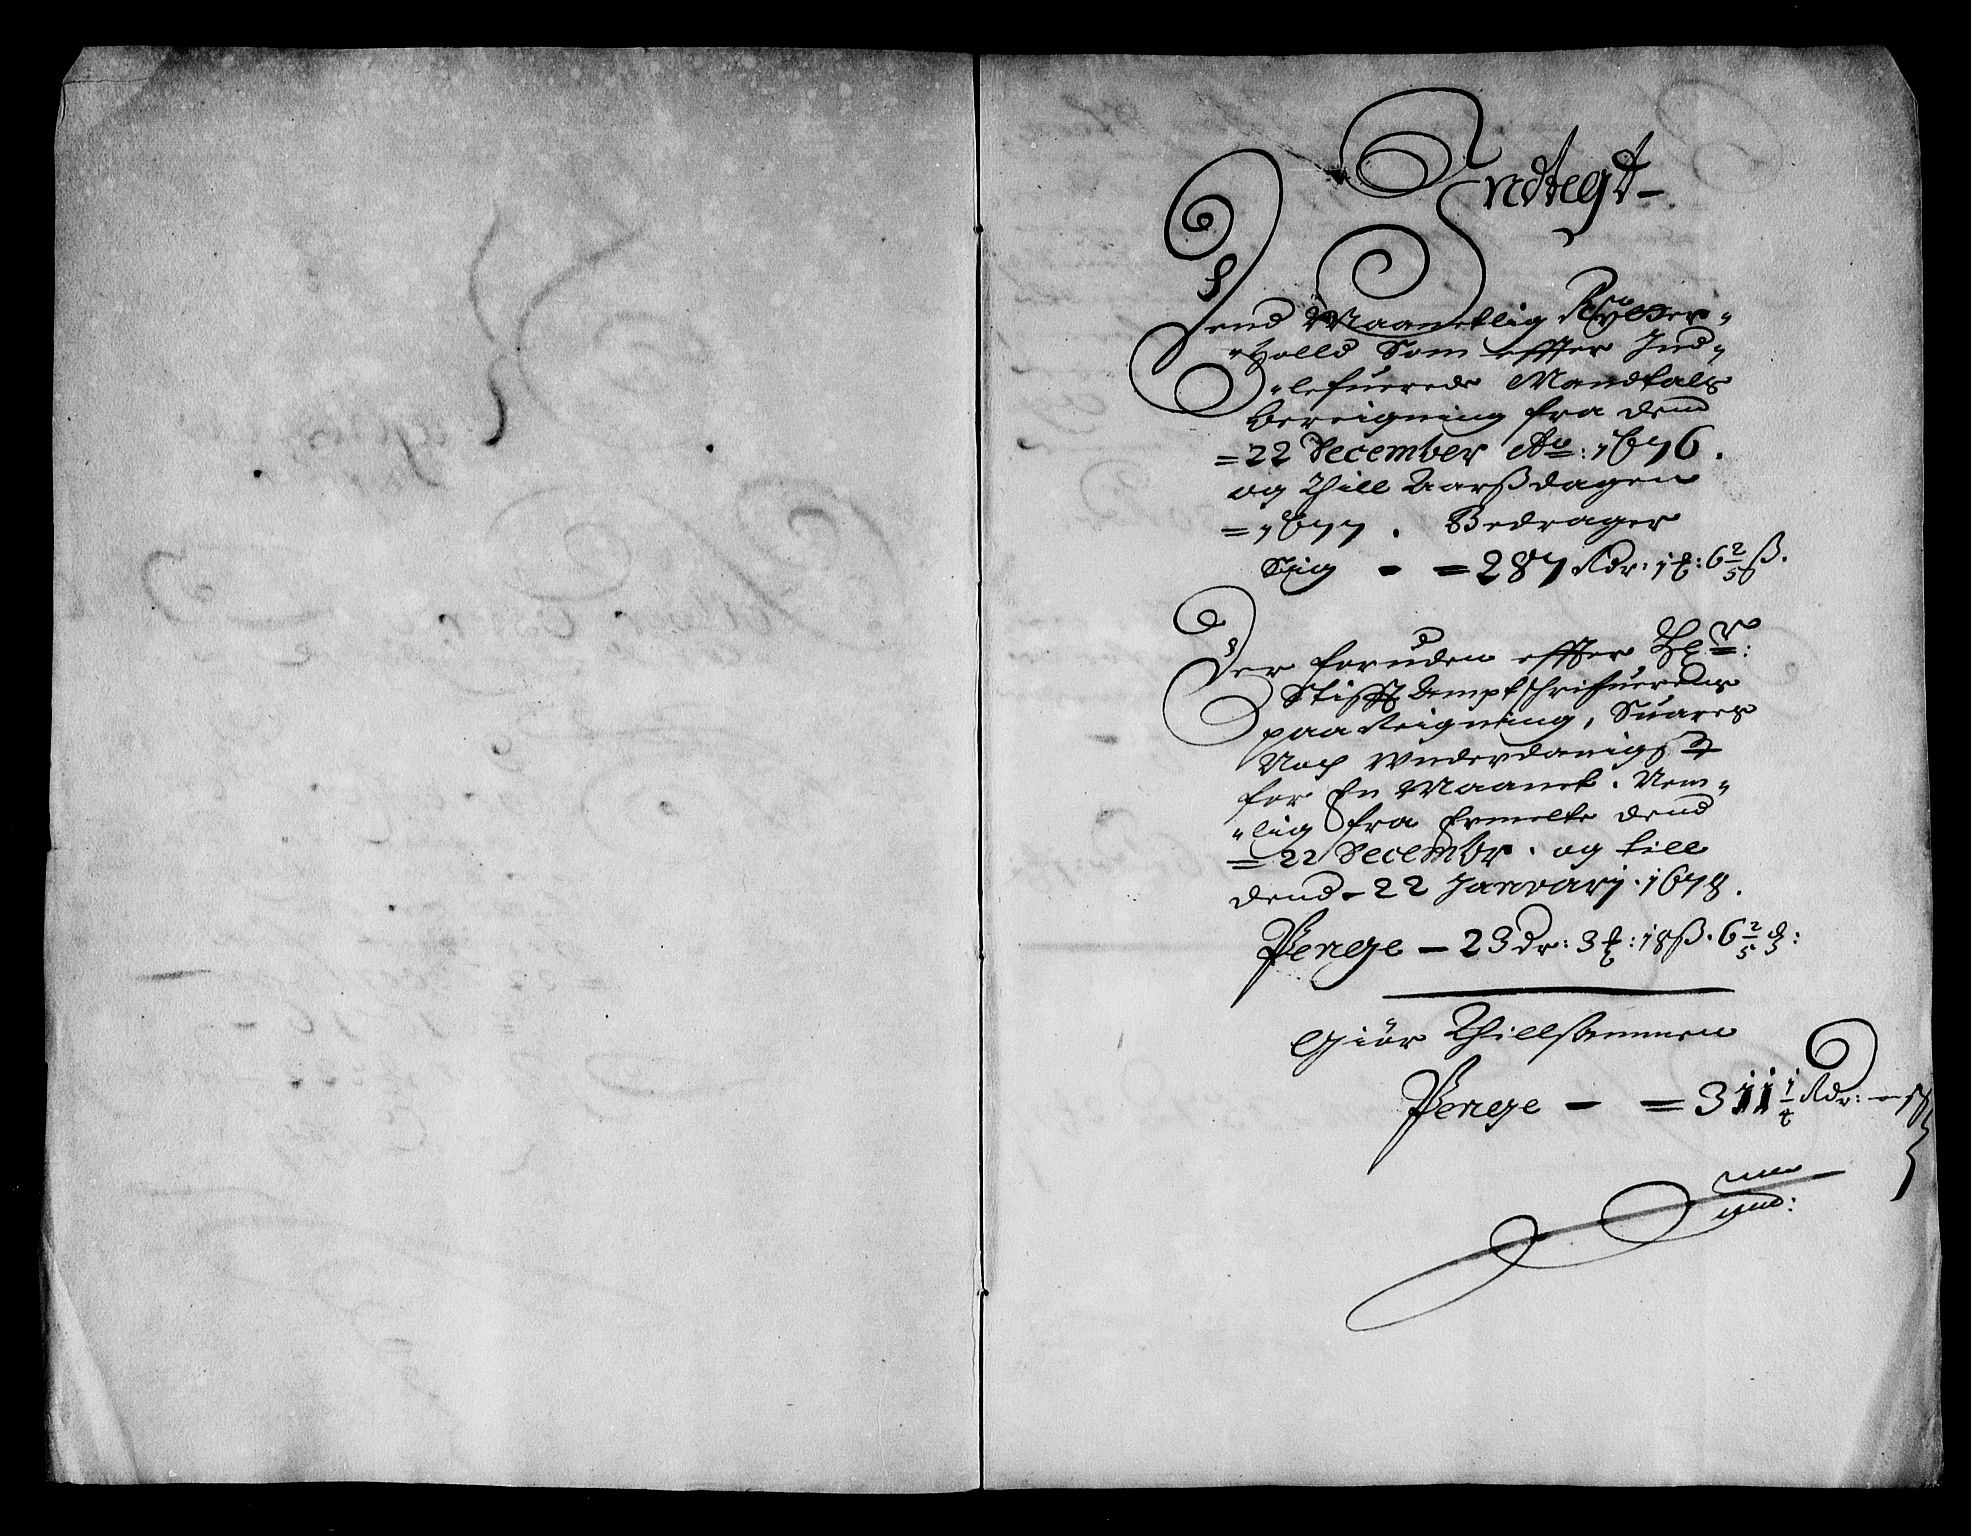 Indtegt
Dend Maanetlig Rytter-
holld Som effter Ind-
lefuerede Mandtals
bereigning fra dend
=22 December Ao: 1676.
og Thill Aarßdagen
=1677. Bedrager
Sig - =287 Rdr: 1 ℔: 6 2/5 ß.
Der foruden effter Hr:
Stifft Ampt schrifuerens
paa teigning, Suares
Noch Underdanigst
for En Maanet. Nem-
lig fra Ermelte dend
=22 Decembr. og till
dend - 22 Januarj. 1678.
Penge - 23 dr: 3 ℔: 18 ß. 6 2/5 ₰:
Giör Thillsammen
Penge - =311 Rdr: